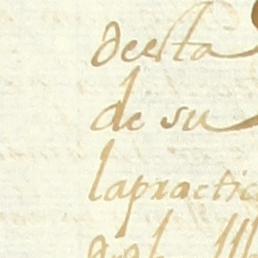 desta
de su
lapractic